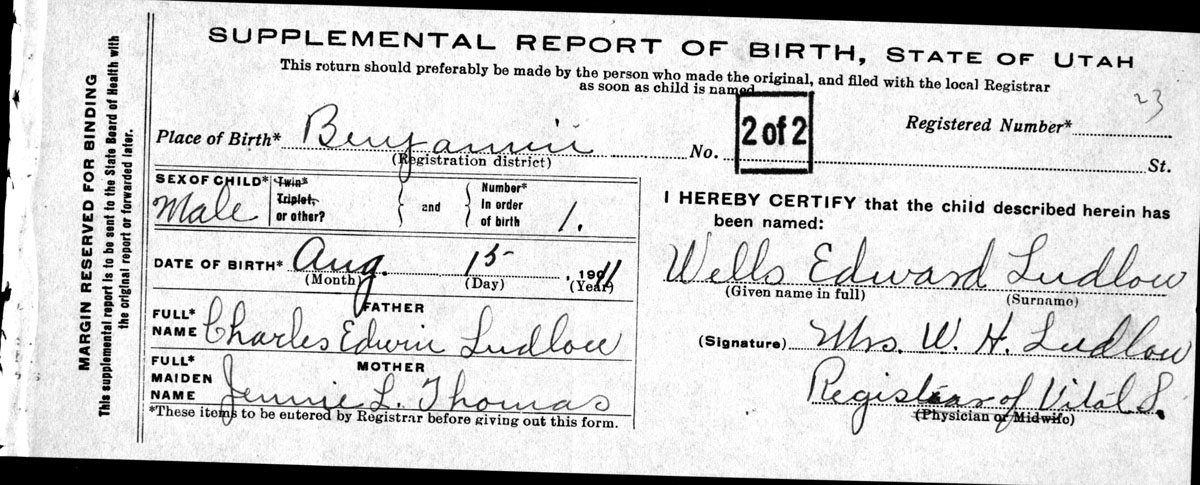 SUPPLEMENTAL REPORT OF BIRTH, STATE OF UTAH
This roturn should preferably be made by the person who made the original, and filed with the local Registrar
as soon as child is named
23
2 of 2
Registered Number*
Place of Birth* Benjamin No. St.
(Registration district)
SEX OF CHILD* Male
Twin*
Triplet,
or other?
and
Number*
in order
of birth 1.
DATE OF BIRTH* Aug. 15 , 1911
(Month) (Day) (Year)
FATHER
FULL*
NAME Charles Edwin Ludlow
MOTHER
FULL*
MAIDEN
NAME Jennie L. Thomas
*These items to be entered by Registrar before giving out this form.
I HEREBY CERTIFY that the child described herein has
been named:
Wells Edward Ludlow
(Given name in full) (Surname)
(Signature) Mrs. W. H. Ludlow
Registrar of Vital S.
(Physician or Midwife)
MARGIN RESERVED FOR BINDING
This supplemental report is to be sent to the State Board of Health with
the original report or forwarded later.